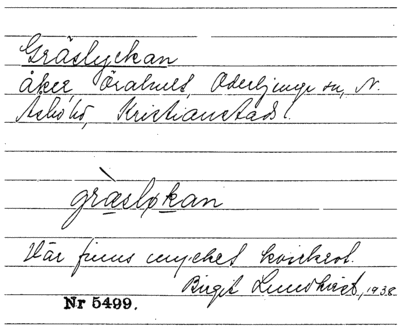 Gräslyckan
åker, Örahult, Oderljunga sn, N.
Åsbo hd, Kristianstads l.
græsløkan
Där finns mycket kvickrot.
Birgit Lundkvist, 1938
Nr 5499.